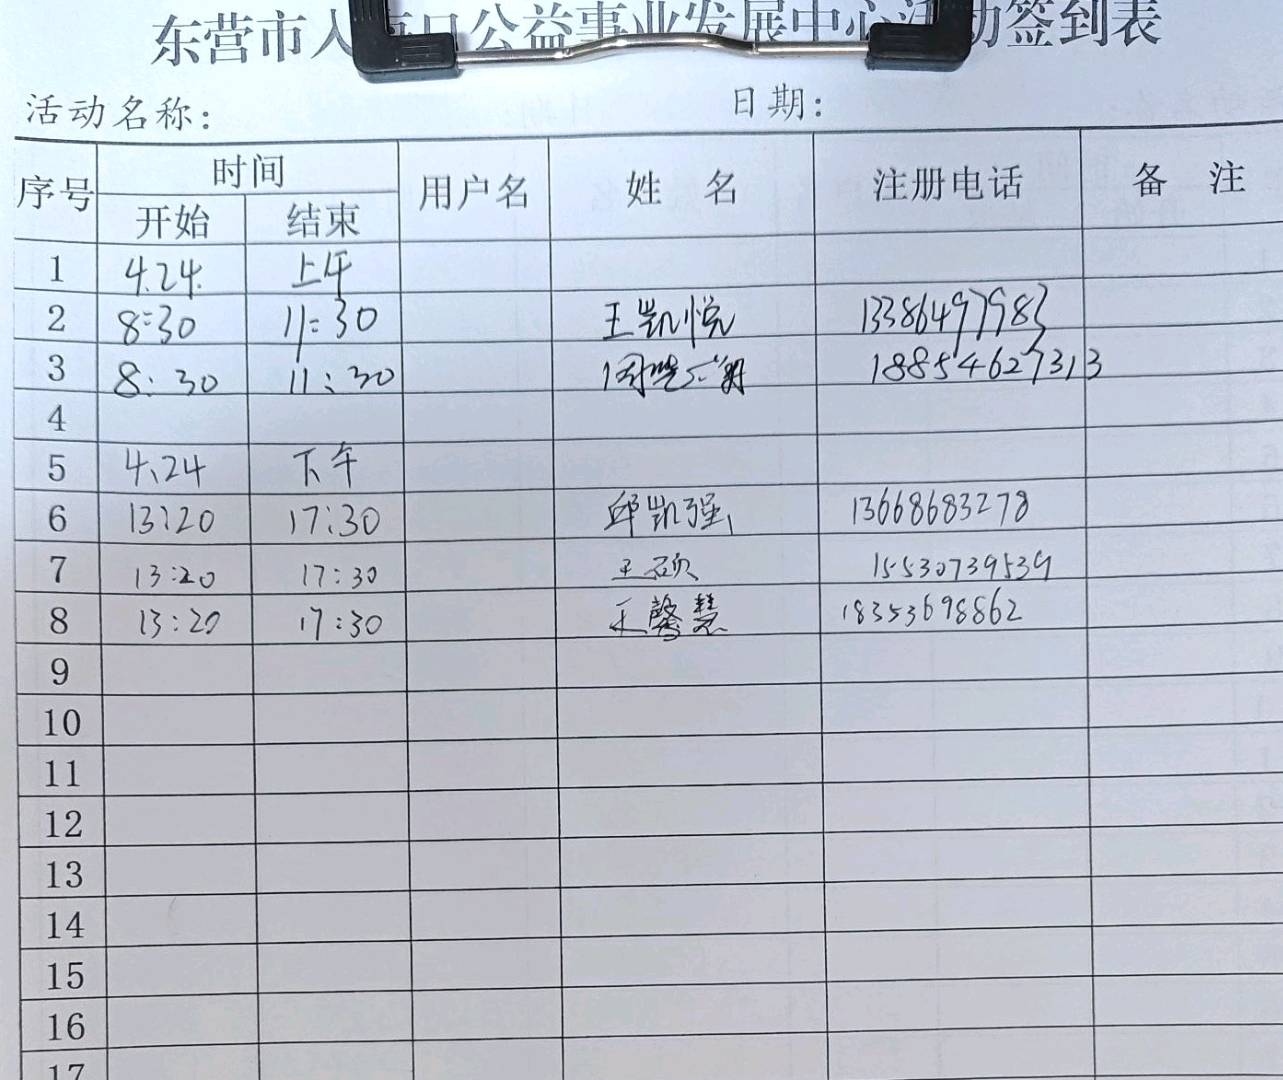 东营市人海口公益事业发展中心活动签到表
活动名称： 日期：
序号 时间 用户名 姓 名 注册电话 备 注
开始 结束
1 4.24. 上午
2 8:30 11:30 王凯悦 13386497983
3 8:30 11:30 18854627313
4
5 4.24 下午
6 13:20 17:30 邱凯强 13668683278
7 13:20 17:30 王硕 15530739539
8 13:20 17:30 王馨慧 18353698862
9
10
11
12
13
14
15
16
17